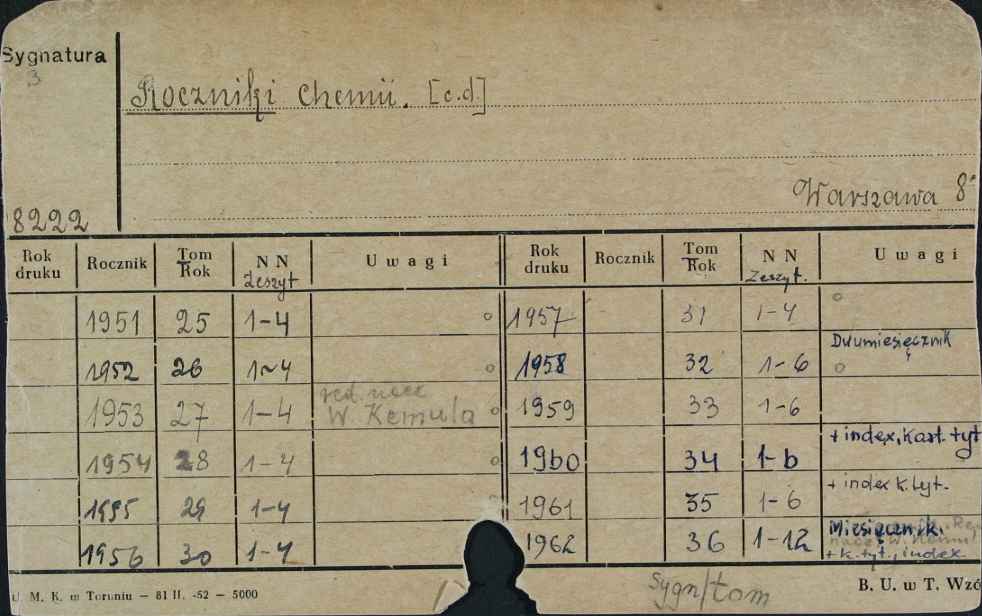 Sygnatura
3
Roczniki Chemii. [c.d.]
Warszawa 8°
8222
Rok druku | Rocznik | Tom Rok | N N Zeszyt | Uwagi | Rok druku | Rocznik | Tom Rok | N N Zeszyt. | Uwagi
1951 25 1-4 o 1957 31 1-4 o
Dwumiesięcznik
1952 26 1-4 o 1958 32 1-6 o
red. nacz
1953 27 1-4 W. Kemula o 1959 33 1-6
+ index, kart. tyt
1954 28 1-4 o 1960 34 1-6
+ index k. tyt.
1955 29 1-4 1961 35 1-6
Miesięcznik.
1956 30 1-4 1962 36 1-12
+ k. tyt., index.
U. M. K. w Toruniu – 81 II. -52 – 5000
Sygn/tom
B. U. w T. Wzó